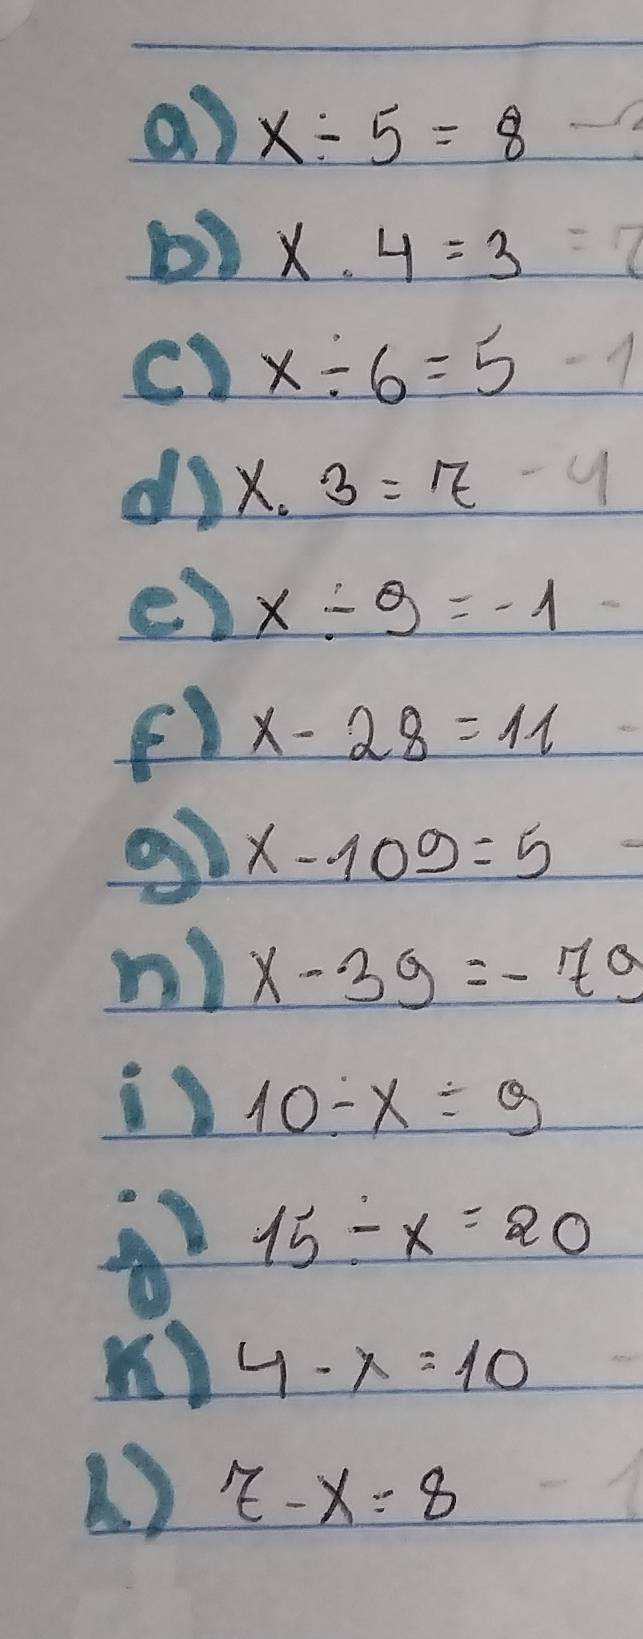 a) x ÷ 5 = 8
b) x . 4 = 3
c) x ÷ 6 = 5 - 1
d) x . 3 = 7 - 4
e) x ÷ 9 = - 1 -
f) x - 28 = 11 -
g) x - 109 = 5 -
h) x - 39 = - 79
i) 10 ÷ x = 9
j) 15 ÷ x = 20
k) 4 - x = 10 -
l) 7 - x = 8 - 1